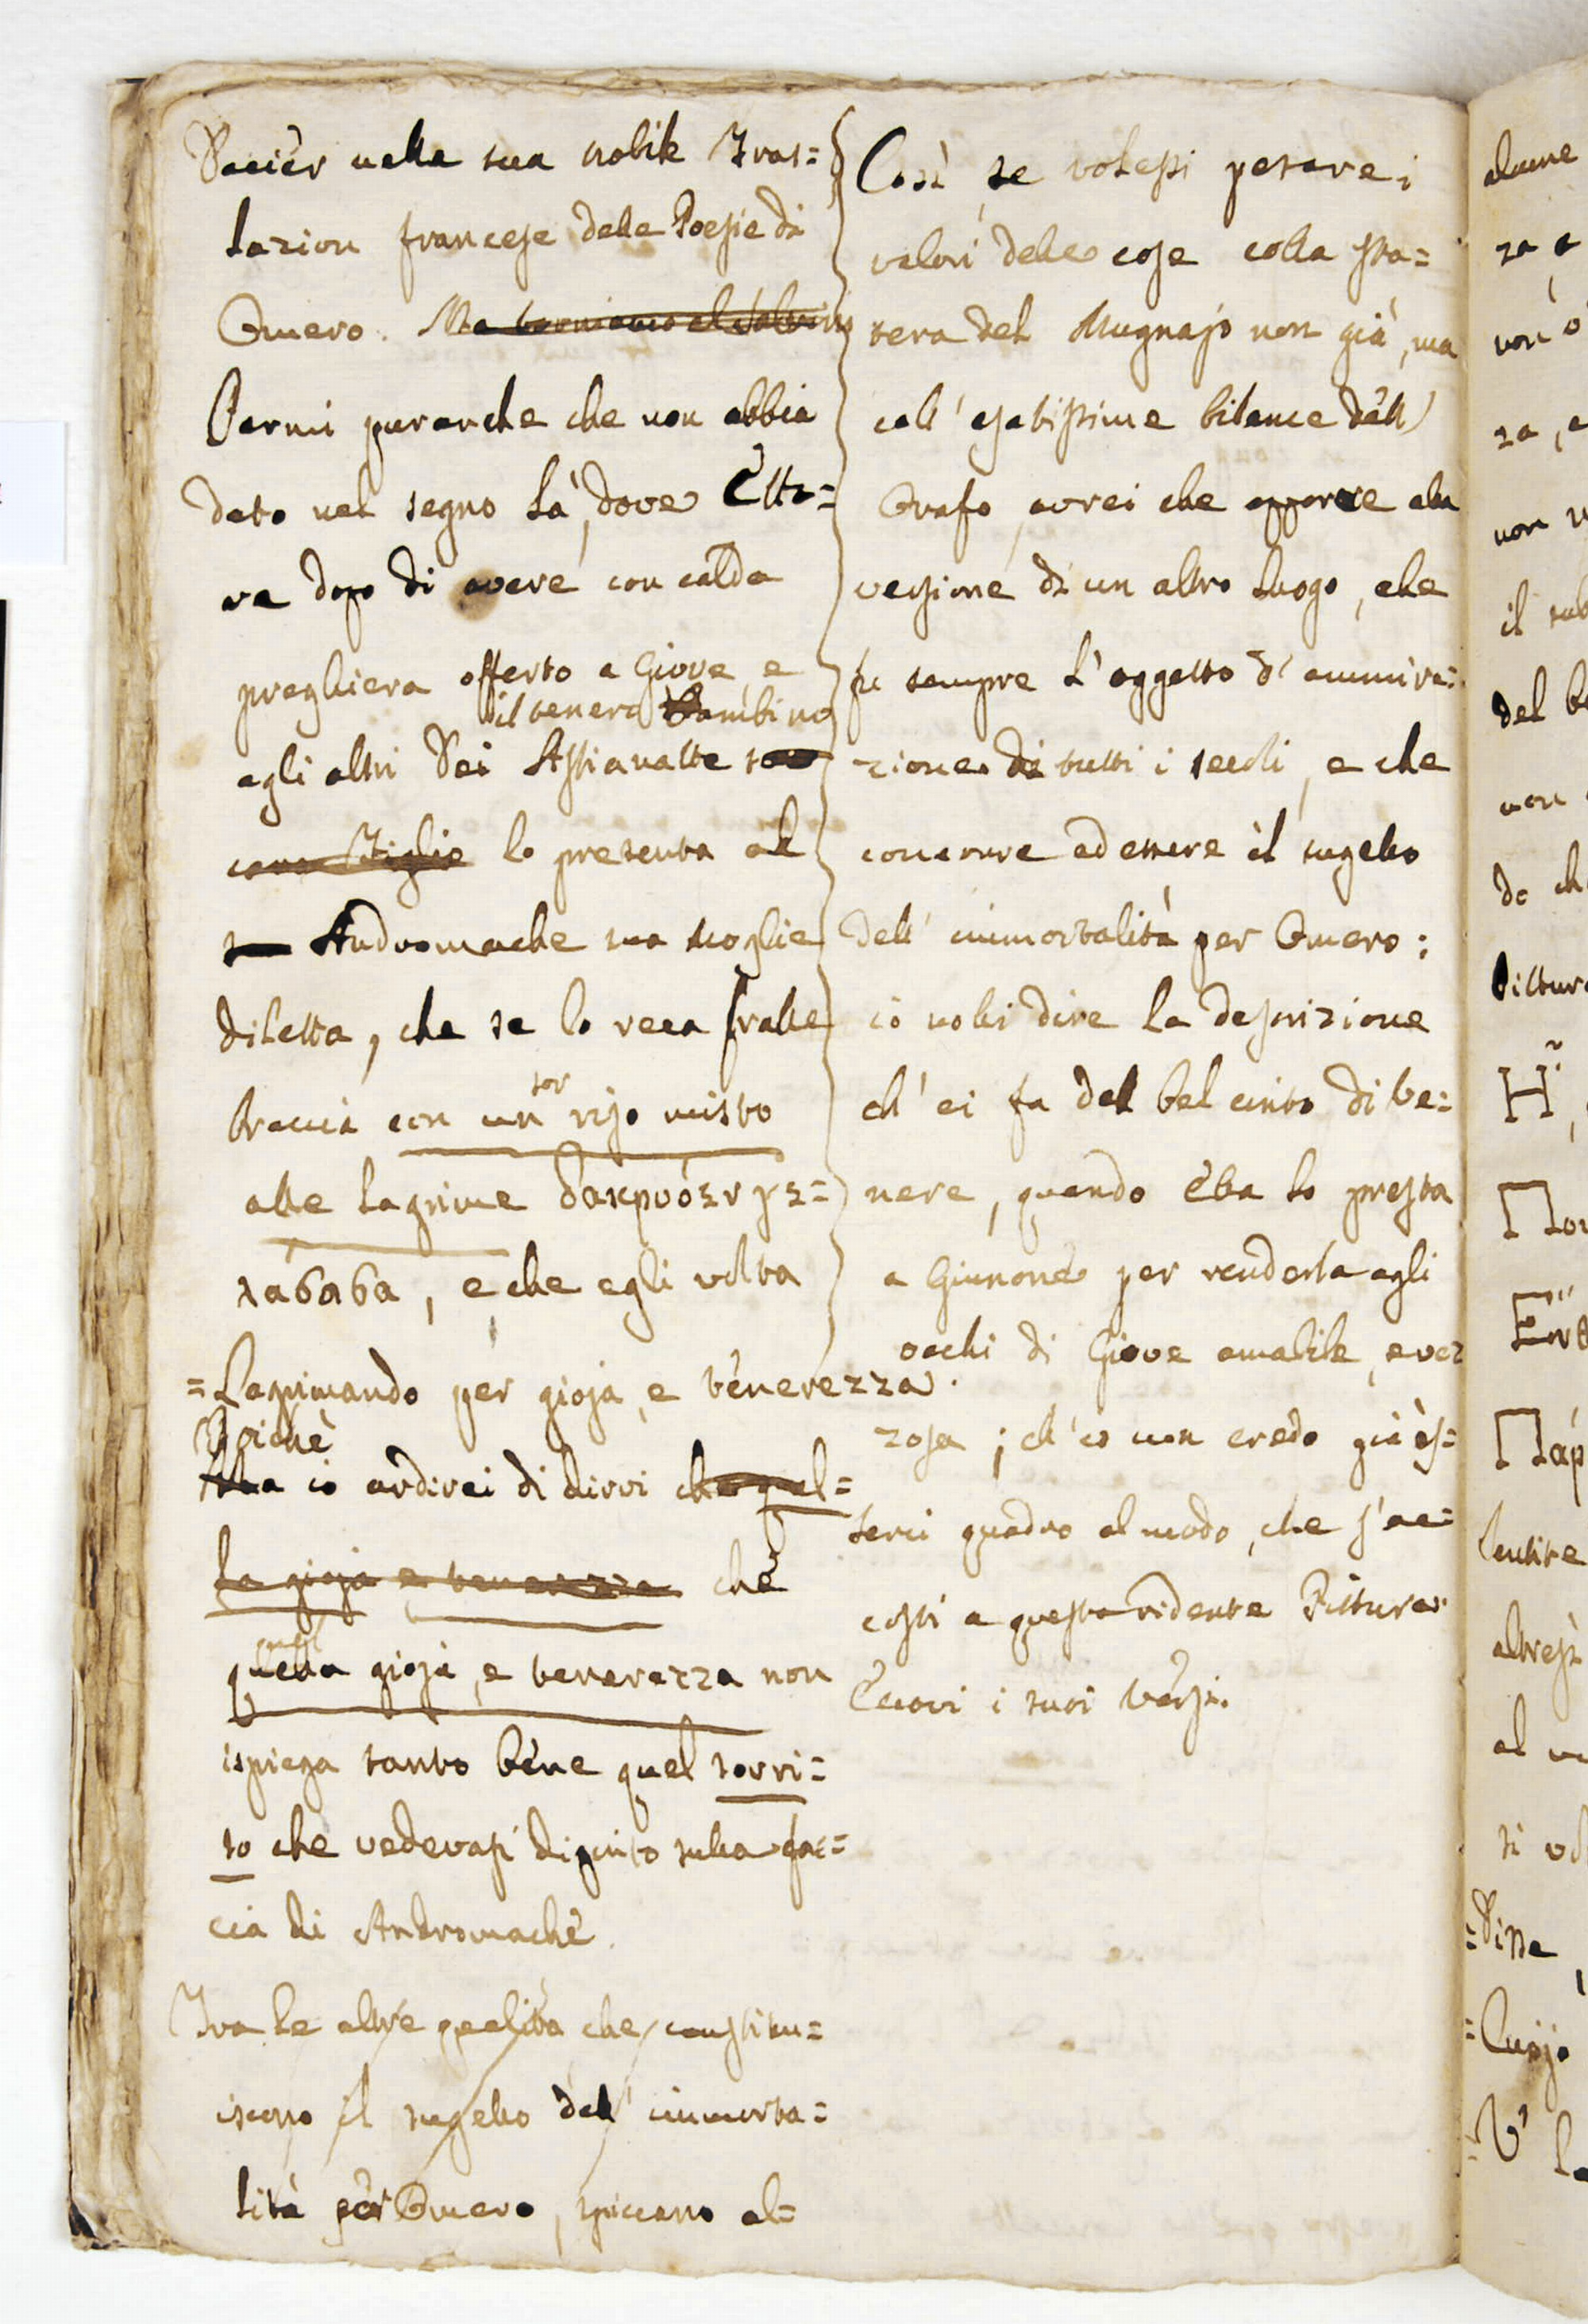 Dacièr nella sua nobile Tras=
lazion francese delle Poesie di
Omero. Ma torniamo al Salvini
Parmi puranche che non abbia
dato nel segno là, dove Etto=
re dopo di avere con calda
preghiera offerto a Giove, e
il tenero Bambino
agli altri Dei Astianatte suo
caro Figlio lo presenta al
Andromache sua moglie
diletta, che se lo reca fralle
sor
braccia con un riso misto
alle lagrime δακρυόεν γε=
λασασα, e che egli volta
=Lagrimando per gioja, e tenerezza.
Poichè
Ma io ardirei di dirvi che quel=
la gioja e tenerezza che
quella gioja, e tenerezza non
ispiega tanto bene quel sorri=
so che vedevasi dipinto sulla fac=
cia di Andromache.
Tra le altre qualità che costitu=
iscono il sugello dell' immorta=
lità per Omero, spiccano al=
Così se volessi pesare i
valori delle cose colla sta=
tera del Mugnajo non già, ma
coll' esatissime bilance dell'
Orafo, avrei che opporre alla
versione di un altro luogo, che
fu sempre l'oggetto d' ammira=
zione di tutti i secoli, e che
concorre ad essere il sugello
dell' immortalità per Omero;
io volli dire la descrizione
ch' ei fa del bel cinto di Ve=
nere, quando Ella lo presta
a Giunone per renderla agli
occhi di Giove amabile, e vez
zosa; ch' io non credo già es=
serci quadro al mondo, che s'ac=
costi a questa ridente Pittura.
Eccovi i suoi versi.